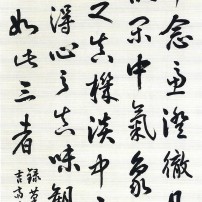 中念慮澄徹見
閒中氣象
之真機淡中
得心之真味觀
如此三者
錄